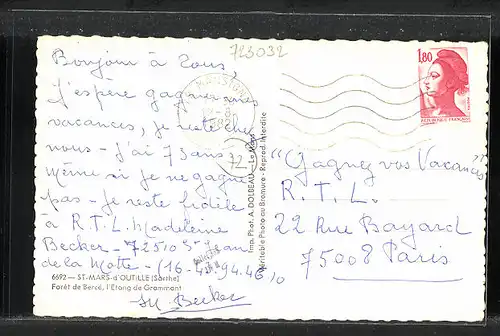 723032
Bonjour à Tous,
j'espère gagner vos
vacances, je reste chez
nous - j'ai 75 ans
Même si je ne gagne
pas - je reste fidèle
à R.T.L. Madeleine
Becker - 72510 St Jean
de la Motte - (16-4-94.46)
M. Becker
6692 — ST-MARS-d'OUTILLÉ (Sarthe)
Forêt de Bercé, l'Etang de Grammont
72
Imp. Phot. A. DOLBEAU - Le Mans
Véritable Photo au Bromure - Reprod. Interdite
1,80
REPUBLIQUE FRANÇAISE
"Gagnez vos Vacances"
R.T.L.
22 Rue Bayard
75008 Paris